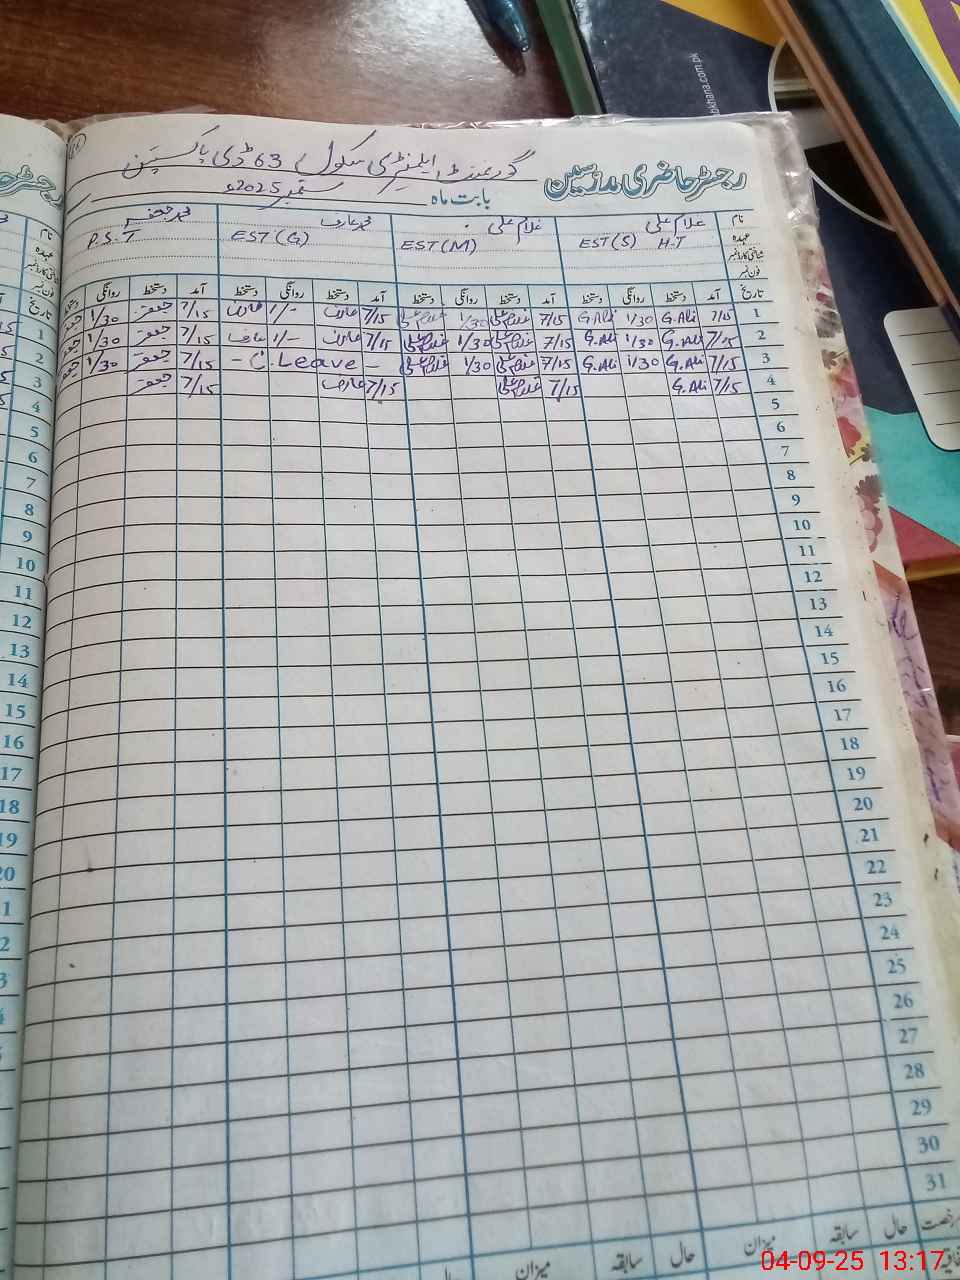 رجسٹر حاضری مدرسین گورنمنٹ ایلیمنٹری سکول 63 ڈی پاکپتن
بابت ماہ ستمبر 2025ء
نام غلام علی غلام علی محمد عارف محمد جعفر
عہدہ EST(S) H.T EST(M) EST(G) P.S.T
شناختی کارڈ نمبر
فون نمبر
تاریخ آمد دستخط روانگی دستخط آمد دستخط روانگی دستخط آمد دستخط روانگی دستخط آمد دستخط روانگی
1 7/15 G.Ali 1/30 G.Ali 7/15 غلام علی 1/30 غلام علی 7/15 عارف 1/- عارف 7/15 جعفر 1/30 جعفر
2 7/15 G.Ali 1/30 G.Ali 7/15 غلام علی 1/30 غلام علی 7/15 عارف 1/- عارف 7/15 جعفر 1/30 جعفر
3 7/15 G.Ali 1/30 G.Ali 7/15 غلام علی 1/30 غلام علی - C.Leave - 7/15 جعفر 1/30 جعفر
4 7/15 G.Ali 7/15 غلام علی 7/15 عارف 7/15 جعفر
5
6
7
8
9
10
11
12
13
14
15
16
17
18
19
20
21
22
23
24
25
26
27
28
29
30
31
رخصت حال سابقہ میزان حال سابقہ میزان حال
bkhana.com.pk
04-09-25 13:17